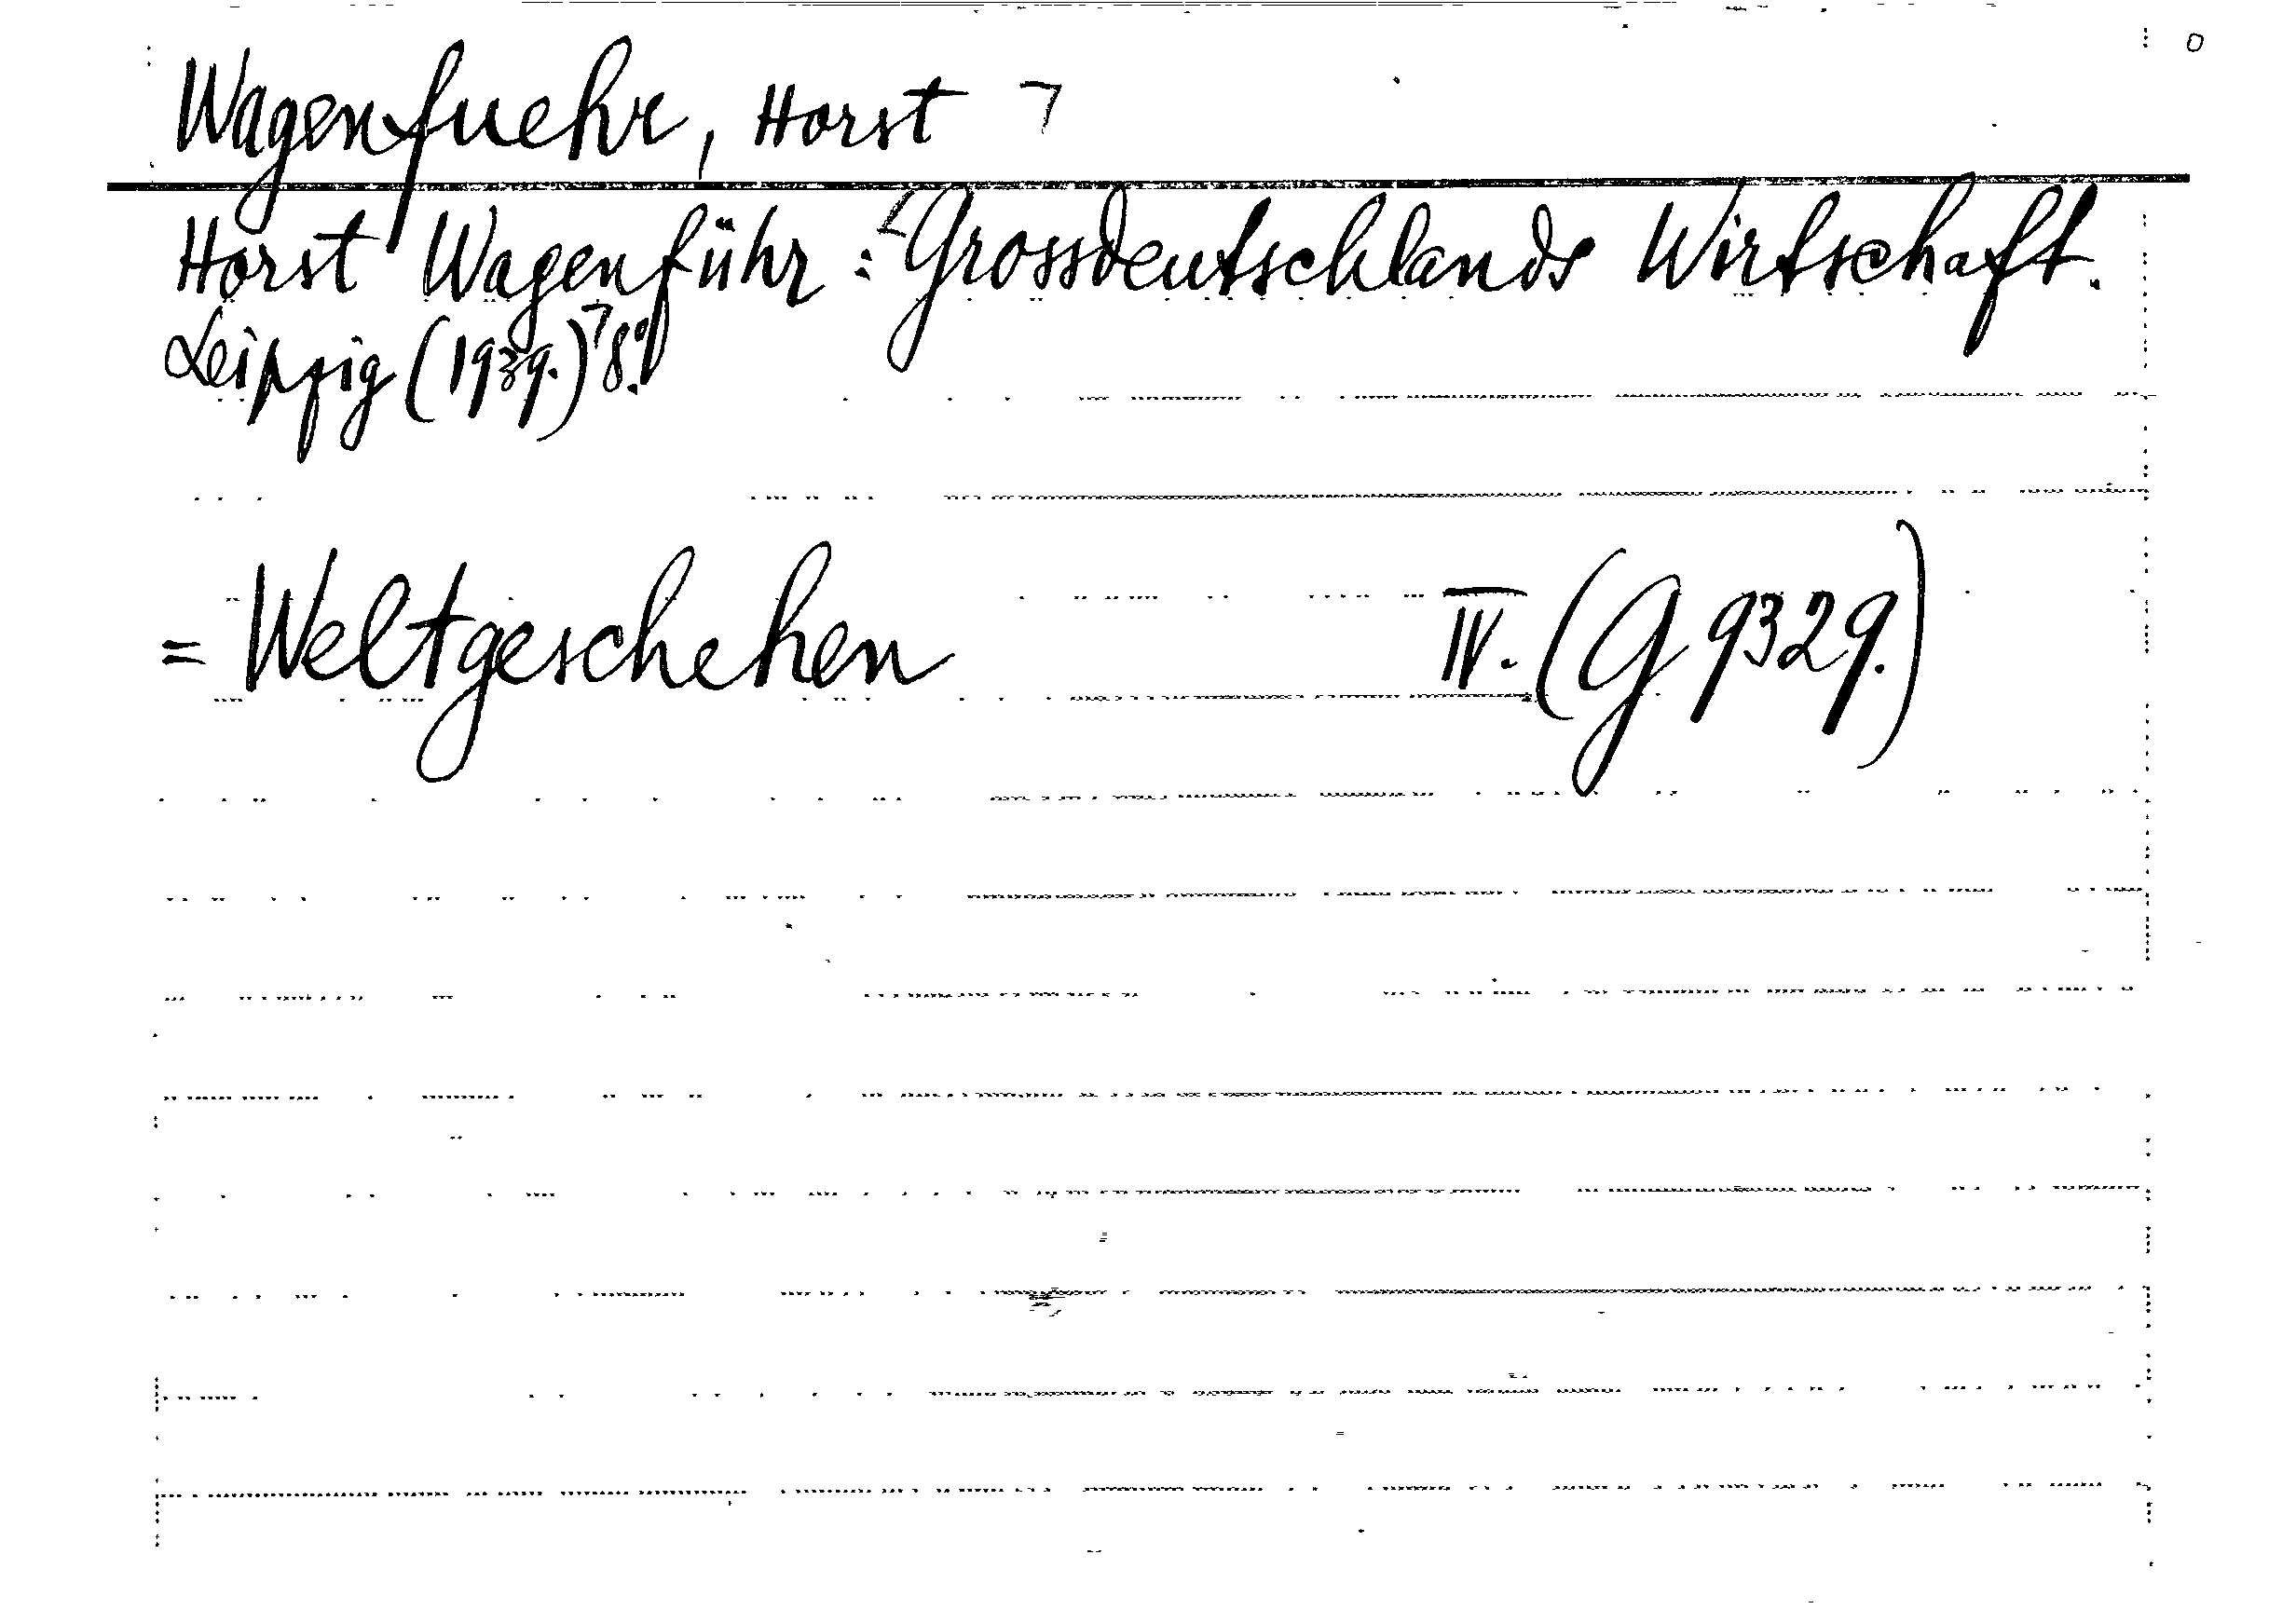 Wagenfuehr, Horst
Horst Wagenführ: Grossdeutschlands Wirtschaft.
Leipzig (1939.) 8°.
= Weltgeschehen IV. (G 9329.)